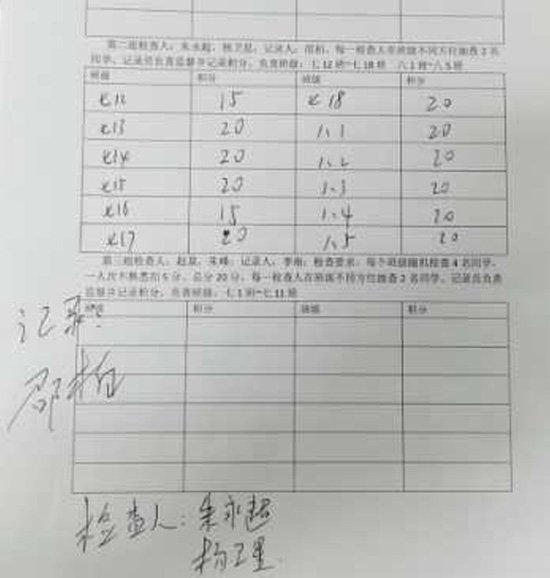 第二组检查人:朱永超、杨卫星;记录人:邵柏,每一检查人在班级不同方位抽查2名
同学,记录员负责监督并记录积分,负责班级:七12班~七18班 八1班~八5班
班级 积分 班级 积分
七12 15 七18 20
七13 20 八1 20
七14 20 八2 20
七15 20 八3 20
七16 15 八4 20
七17 20 八5 20
第三组检查人:赵星、朱峰;记录人:李楠;检查要求:每个班级随机检查4名同学,
一人次不熟悉扣5分,总分20分,每一检查人在班级不同方位抽查2名同学,记录员负责
监督并记录积分,负责班级:七1班~七11班
班级 积分 班级 积分
记录:
邵柏
检查人:朱永超
杨卫星